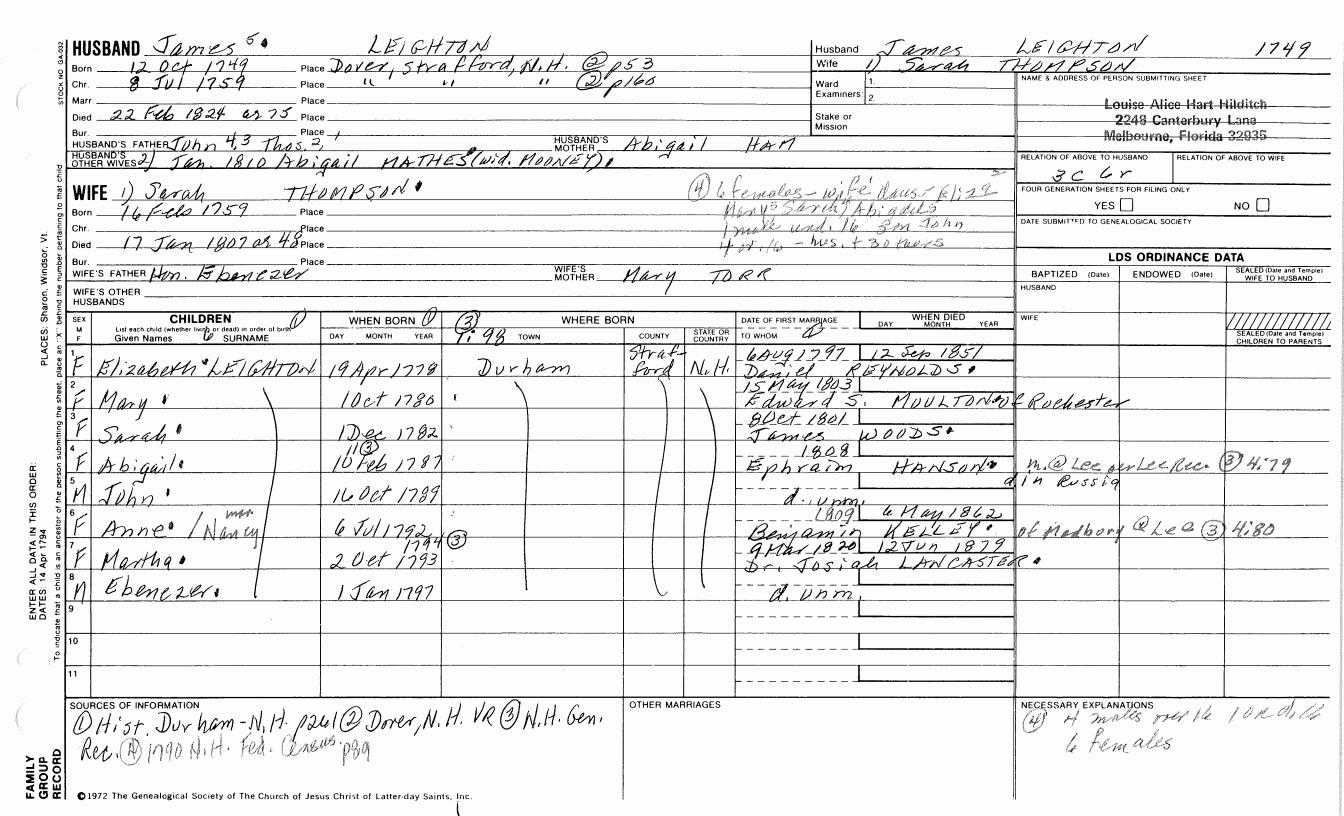 HUSBAND James 5 LEIGHTON
Born 12 Oct 1749 Place Dover, Strafford, N.H. ② p53
Chr. 8 Jul 1759 Place " " " ② p160
Marr Place
Died 22 Feb 1824 ae 75 Place
Bur. Place
HUSBAND'S FATHER John 4,3 Thos. 2,1 HUSBAND'S MOTHER Abigail HAM
HUSBAND'S OTHER WIVES 2) Jan. 1810 Abigail MATHES (wid. MOONEY)
Husband James LEIGHTON 1749
Wife 1) Sarah THOMPSON
Ward 1.
Examiners 2.
Stake or Mission
NAME & ADDRESS OF PERSON SUBMITTING SHEET
Louise Alice Hart Hilditch
2248 Canterbury Lane
Melbourne, Florida 32935
RELATION OF ABOVE TO HUSBAND RELATION OF ABOVE TO WIFE
3C 6r
FOUR GENERATION SHEETS FOR FILING ONLY
YES NO
DATE SUBMITTED TO GENEALOGICAL SOCIETY
WIFE 1) Sarah THOMPSON
Born 16 Feb 1759 Place
Chr. Place
Died 17 Jan 1807 ae 48 Place
Bur. Place
WIFE'S FATHER Hon. Ebenezer WIFE'S MOTHER Mary TORR
WIFE'S OTHER HUSBANDS
④ 6 females - wife daus Eliz
Mary Sarah Abigail
1 male und. 16 son John
4 ov. 16 - hus. + 3 others
LDS ORDINANCE DATA
BAPTIZED (Date) ENDOWED (Date) SEALED (Date and Temple) WIFE TO HUSBAND
HUSBAND
WIFE
SEALED (Date and Temple) CHILDREN TO PARENTS
SEX M F CHILDREN ① List each child (whether living or dead) in order of birth Given Names 6 SURNAME
WHEN BORN ① DAY MONTH YEAR
③ 9:98 WHERE BORN TOWN COUNTY STATE OR COUNTRY
DATE OF FIRST MARRIAGE TO WHOM
WHEN DIED DAY MONTH YEAR
1 F Elizabeth LEIGHTON 19 Apr 1778 Durham Strafford N.H. 6 Aug 1797 12 Sep 1851
Daniel REYNOLDS
2 F Mary 1 Oct 1780 15 May 1803
Edward S. MOULTON of Rochester
3 F Sarah 1 Dec 1782 8 Oct 1801
James WOODS
4 F Abigail 11③ 10 Feb 1787 1808
Ephraim HANSON m. @ Lee per Lee Rec. ③ 4:79
5 M John 16 Oct 1789 d. in Russia
d. unm.
6 F Anne / mar. Nancy 6 Jul 1792 1809 6 May 1862
Benjamin KELLEY of Madbury @ Lee ③ 4:80
7 F Martha 1794 ③ 2 Oct 1793 9 Mar 1820 12 Jun 1879
Dr. Josiah LANCASTER
8 M Ebenezer 1 Jan 1797 d. unm.
9
10
11
SOURCES OF INFORMATION
① Hist. Durham-N.H. p261 ② Dover, N.H. VR ③ N.H. Gen.
Rec. ④ 1790 N.H. Fed. Census p89
OTHER MARRIAGES
NECESSARY EXPLANATIONS
④ 4 males over 16
6 females
©1972 The Genealogical Society of The Church of Jesus Christ of Latter-day Saints, Inc.
FAMILY GROUP RECORD
ENTER ALL DATA IN THIS ORDER:
DATES: 14 Apr 1794
PLACES: Sharon, Windsor, Vt.
To indicate that a child is an ancestor of the person submitting the sheet, place an "X" behind the number pertaining to that child
STOCK NO. GA-032